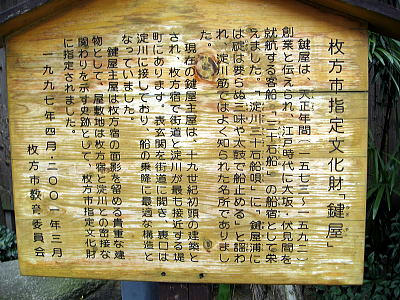 枚方市指定文化財「鍵屋」
鍵屋は、天正年間(一五七三~一五九二)
創業と伝えられ、江戸時代に大坂・伏見間を
就航する客船「三十石船」の船宿として栄
えました。「淀川三十石船唄」に「鍵屋浦に
は碇は要らぬ三味や太鼓で船止める」と謡わ
れ、淀川筋ではよく知られた名所でありまし
た。
現在の鍵屋主屋は、十九世紀初頭の建築と
され、枚方宿で街道と淀川が最も接近する堤
町にあります。表玄関を街道に開き、裏口は
淀川に接しており、船の乗降に最適な構造と
なっていました。
鍵屋主屋は枚方宿の面影を留める貴重な建
物として、屋敷地は枚方宿と淀川との密接な
関わりを示す史跡として、枚方市指定文化財
に指定されました。
一九九七年四月・二〇〇一年三月
枚方市教育委員会